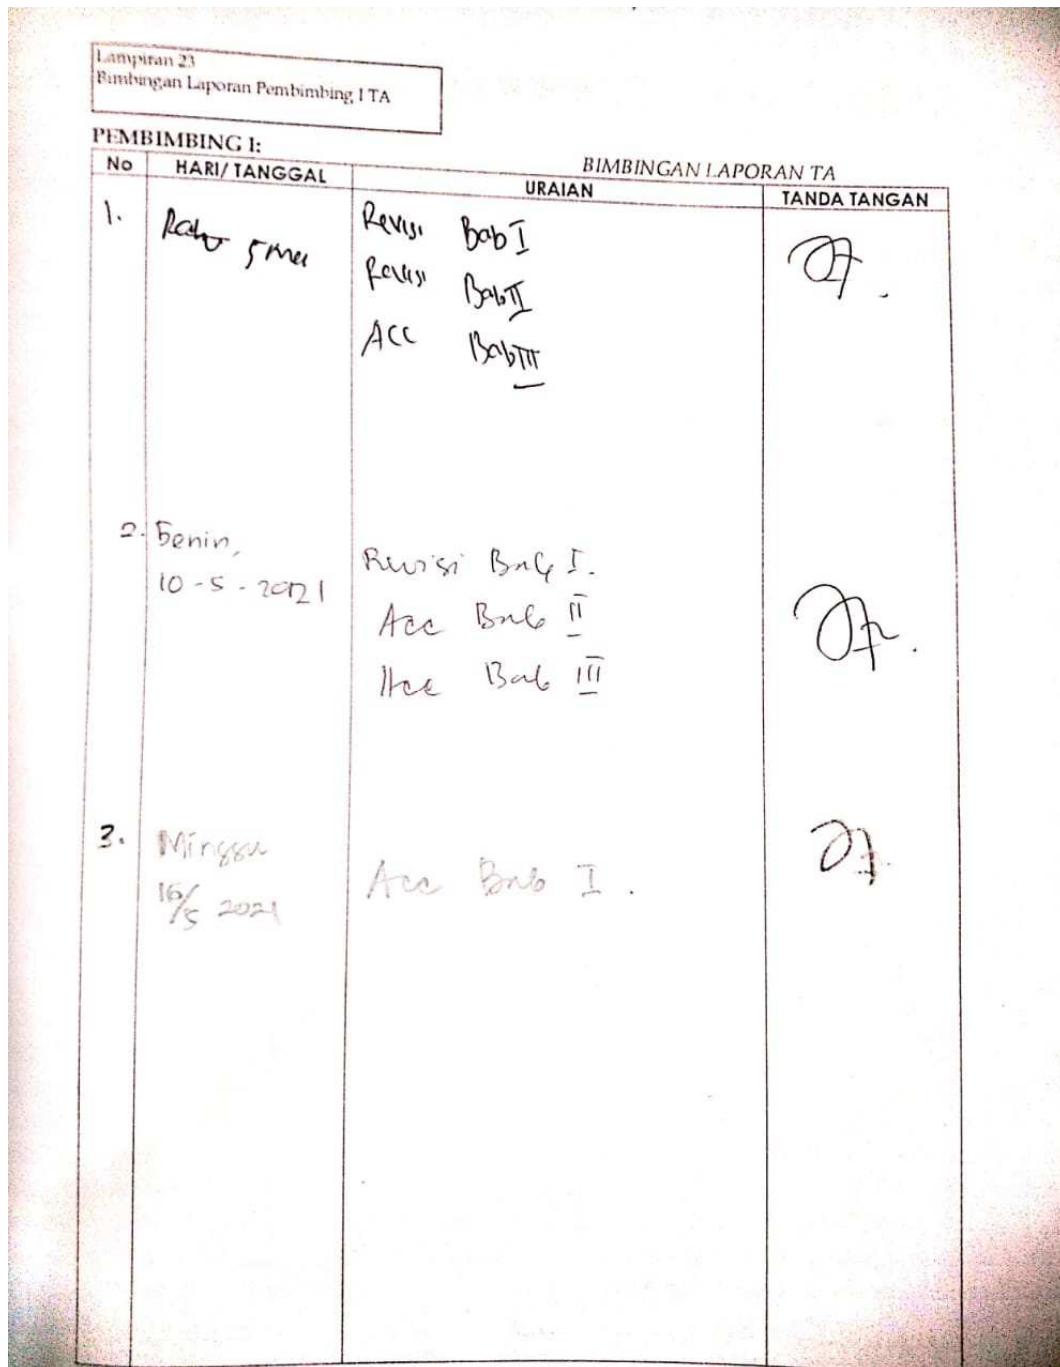 Lampiran 23
Bimbingan Laporan Pembimbing I TA
PEMBIMBING I:
BIMBINGAN LAPORAN TA
No HARI/ TANGGAL URAIAN TANDA TANGAN
1. Rabu 5 Mei
Revisi Bab I
Revisi Bab II
ACC Bab III
2. Senin,
10 - 5 - 2021
Revisi Bab I.
Acc Bab II
Acc Bab III
3. Minggu
16/5 2021
Acc Bab I .